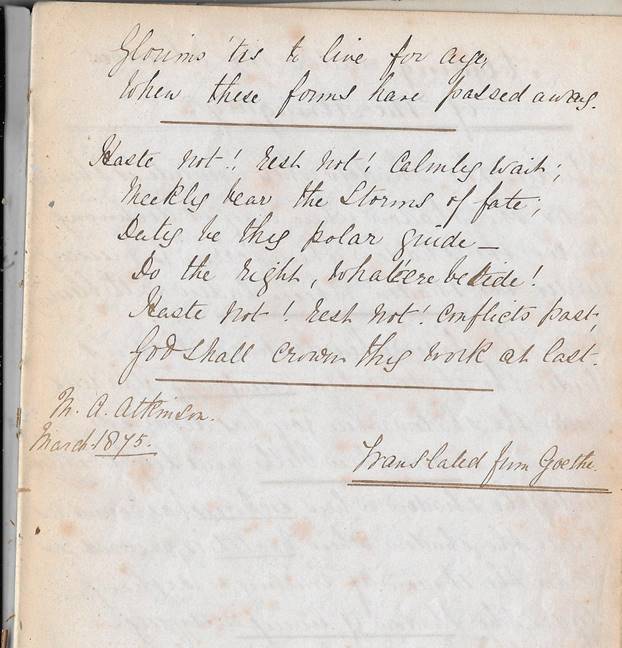 Glorious 'tis to live for aye,
When these forms have passed away.
Haste not! rest not! Calmly wait;
Meekly bear the storms of fate;
Duty be thy polar guide—
Do the right, whate'ere betide!
Haste not! rest not! Conflicts past,
God shall crown thy work at last.
M. A. Atkinson.
March 1875.
Translated from Goethe.